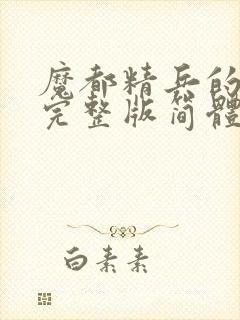 魔都精兵的
完整版简體
白素素